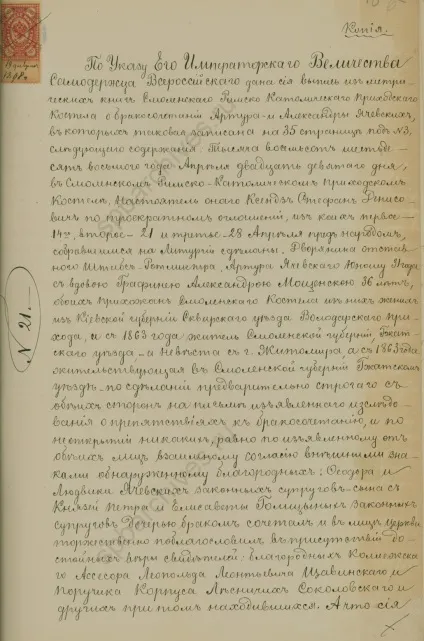 Копія.
По Указу Его Императорскаго Величества
Самодержца Всероссійскаго дана сія выпись изъ метри-
ческихъ книгъ Смоленскаго Римско Католическаго Приходскаго
Костела о бракосочетаніи Артура и Александры Ячевскихъ,
въ которыхъ таковая записана на 35 страницѣ подъ №3,
слѣдующаго содержанія Тысяча восемьсотъ шестьде-
сятъ восьмого года Апрѣля двадцать девятаго дня,
въ Смоленскомъ Римско-Католическомъ приходскомъ
Костелѣ, Настоятель онаго Ксендзъ Стефанъ Денисо-
вичъ по троекратномъ оглашеніи, изъ коихъ первое
14го, второе - 21 и третье - 28 Апрѣля предъ народомъ,
собравшимся на Литургіи сдѣланы. Дворянина отстав-
ного Штабсъ-Ротмистра, Артура Ячевскаго Юношу
съ вдовою Графинею Александрою Мошенскою 36 лѣтъ,
обоихъ прихожанъ Смоленскаго Костела изъ нихъ женихъ
изъ Кіевской губерніи Сквирскаго уѣзда Володарскаго при-
хода, а съ 1863 года житель Смоленской губерніи, Гжат-
скаго уѣзда - а невѣста съ г. Житомира, а съ 1863 года
жительствующая въ Смоленской губерніи Гжатскомъ
уѣздѣ - по сдѣланіи предварительно строгаго съ
обѣихъ сторонъ на письмѣ изъявленнаго изслѣдо-
ванія о препятствіяхъ къ бракосочетанію, и по
неоткрытіи никакихъ, равно по изъявленному отъ
обѣихъ лицъ взаимному согласію внѣшними зна-
ками обнаруженному благородныхъ: Ѳеодора и
Людвики Ячевскихъ законныхъ супруговъ - сына съ
Князей Петра и Елисаветы Голицыныхъ законныхъ
супруговъ Дочерью бракомъ сочеталъ и въ лицѣ Церкви
торжественно поблагословилъ въ присутствіи до-
стойныхъ вѣры свидѣтелей: благородныхъ Коллежска-
го Ассесора Леопольда Леонтьевича Щавинскаго, и
Поручика Корпуса Лѣсничихъ Соколовскаго и
другихъ при томъ находившихся. А что сія
N 21.